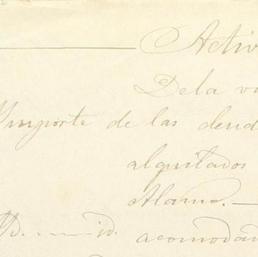 Activ
De la v
Importe de las deud
alquilados
Alamo.—
Yd. . . — id. acomodad